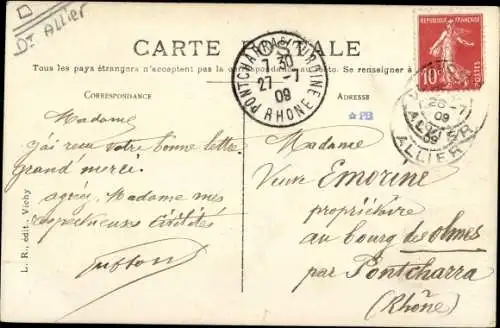 D
Dt Allier
CARTE POSTALE
Tous les pays étrangers n'acceptent pas la correspondance au recto. Se renseigner à
CORRESPONDANCE
ADRESSE
PONTCHARRA S TURDINE
7 30
27 - 1
09
RHONE
REPUBLIQUE FRANÇAISE
10
POSTES
26 - 1
09
ALLIER
PB
Madame
j'ai reçu votre bonne lettre
grand merci.
agréez, Madame mes
respectueuses civilités
Madame
Veuve Emorine
propriétaire
au bourg des olmes
par Pontcharra
(Rhône)
L. R., édit., Vichy